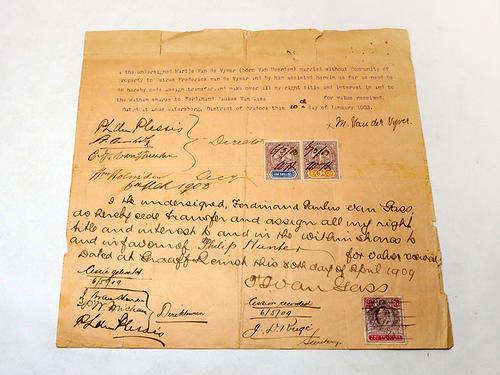 I the undersigned Martje Van de Vyver (born Van Heerden) married without Community of
property to Petrus Frederick van de Vyver and by him assisted herein as far as need be
do hereby cede assign transfer and make over all my right title and interest in and to
the within shares to Ferdinand Paulus Van Gass for value received.
Dated at Lower District of Cradock this 10th day of January 1903.
M. Van der Vyver.
P L du Plessis
Director
Secy
6 March 1903
6/3/03 6/3/03
ONE SHILLING
I the undersigned, Ferdinand Paulus van Gass,
do hereby cede transfer and assign all my right
title and interest to and in the within shares to
and in favour of Philip Hunter for value received
Dated at Graaff Reinet this 30th day of April 1909
F P Van Gass
6/5/09
Cession recorded
6/5/09
P L du Plessis
Secretary